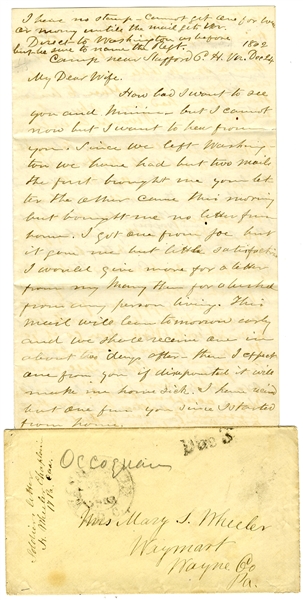 I have no stamp. Cannot get one for love
or money until the mail gets thr.
Direct to Washington as before
but be sure to name the Regt.
1862
Camp near Stafford C. H. Va. Dec 24
My Dear Wife.
How bad I want to see
you and Minnie but I cannot
now but I want to hear from
you. Since we left Washing-
ton we have had but two mails
the first brought me your let
ter the other came this morning
but brought me no letter from
home. I got one from Joe but
it gave me but little satisfaction
I would give more for a letter
from my Mary than for a bushel
from any person living. This
mail will leave tomorrow early
and we shall receive one in
about two days after then I expect
one from you if disappointed it will
make me home sick. I have
but one from you since I started
from home.
Soldiers letter
Occoquan
Due 3
Mrs Mary S. Wheeler
Waymart
Wayne Co
Pa.